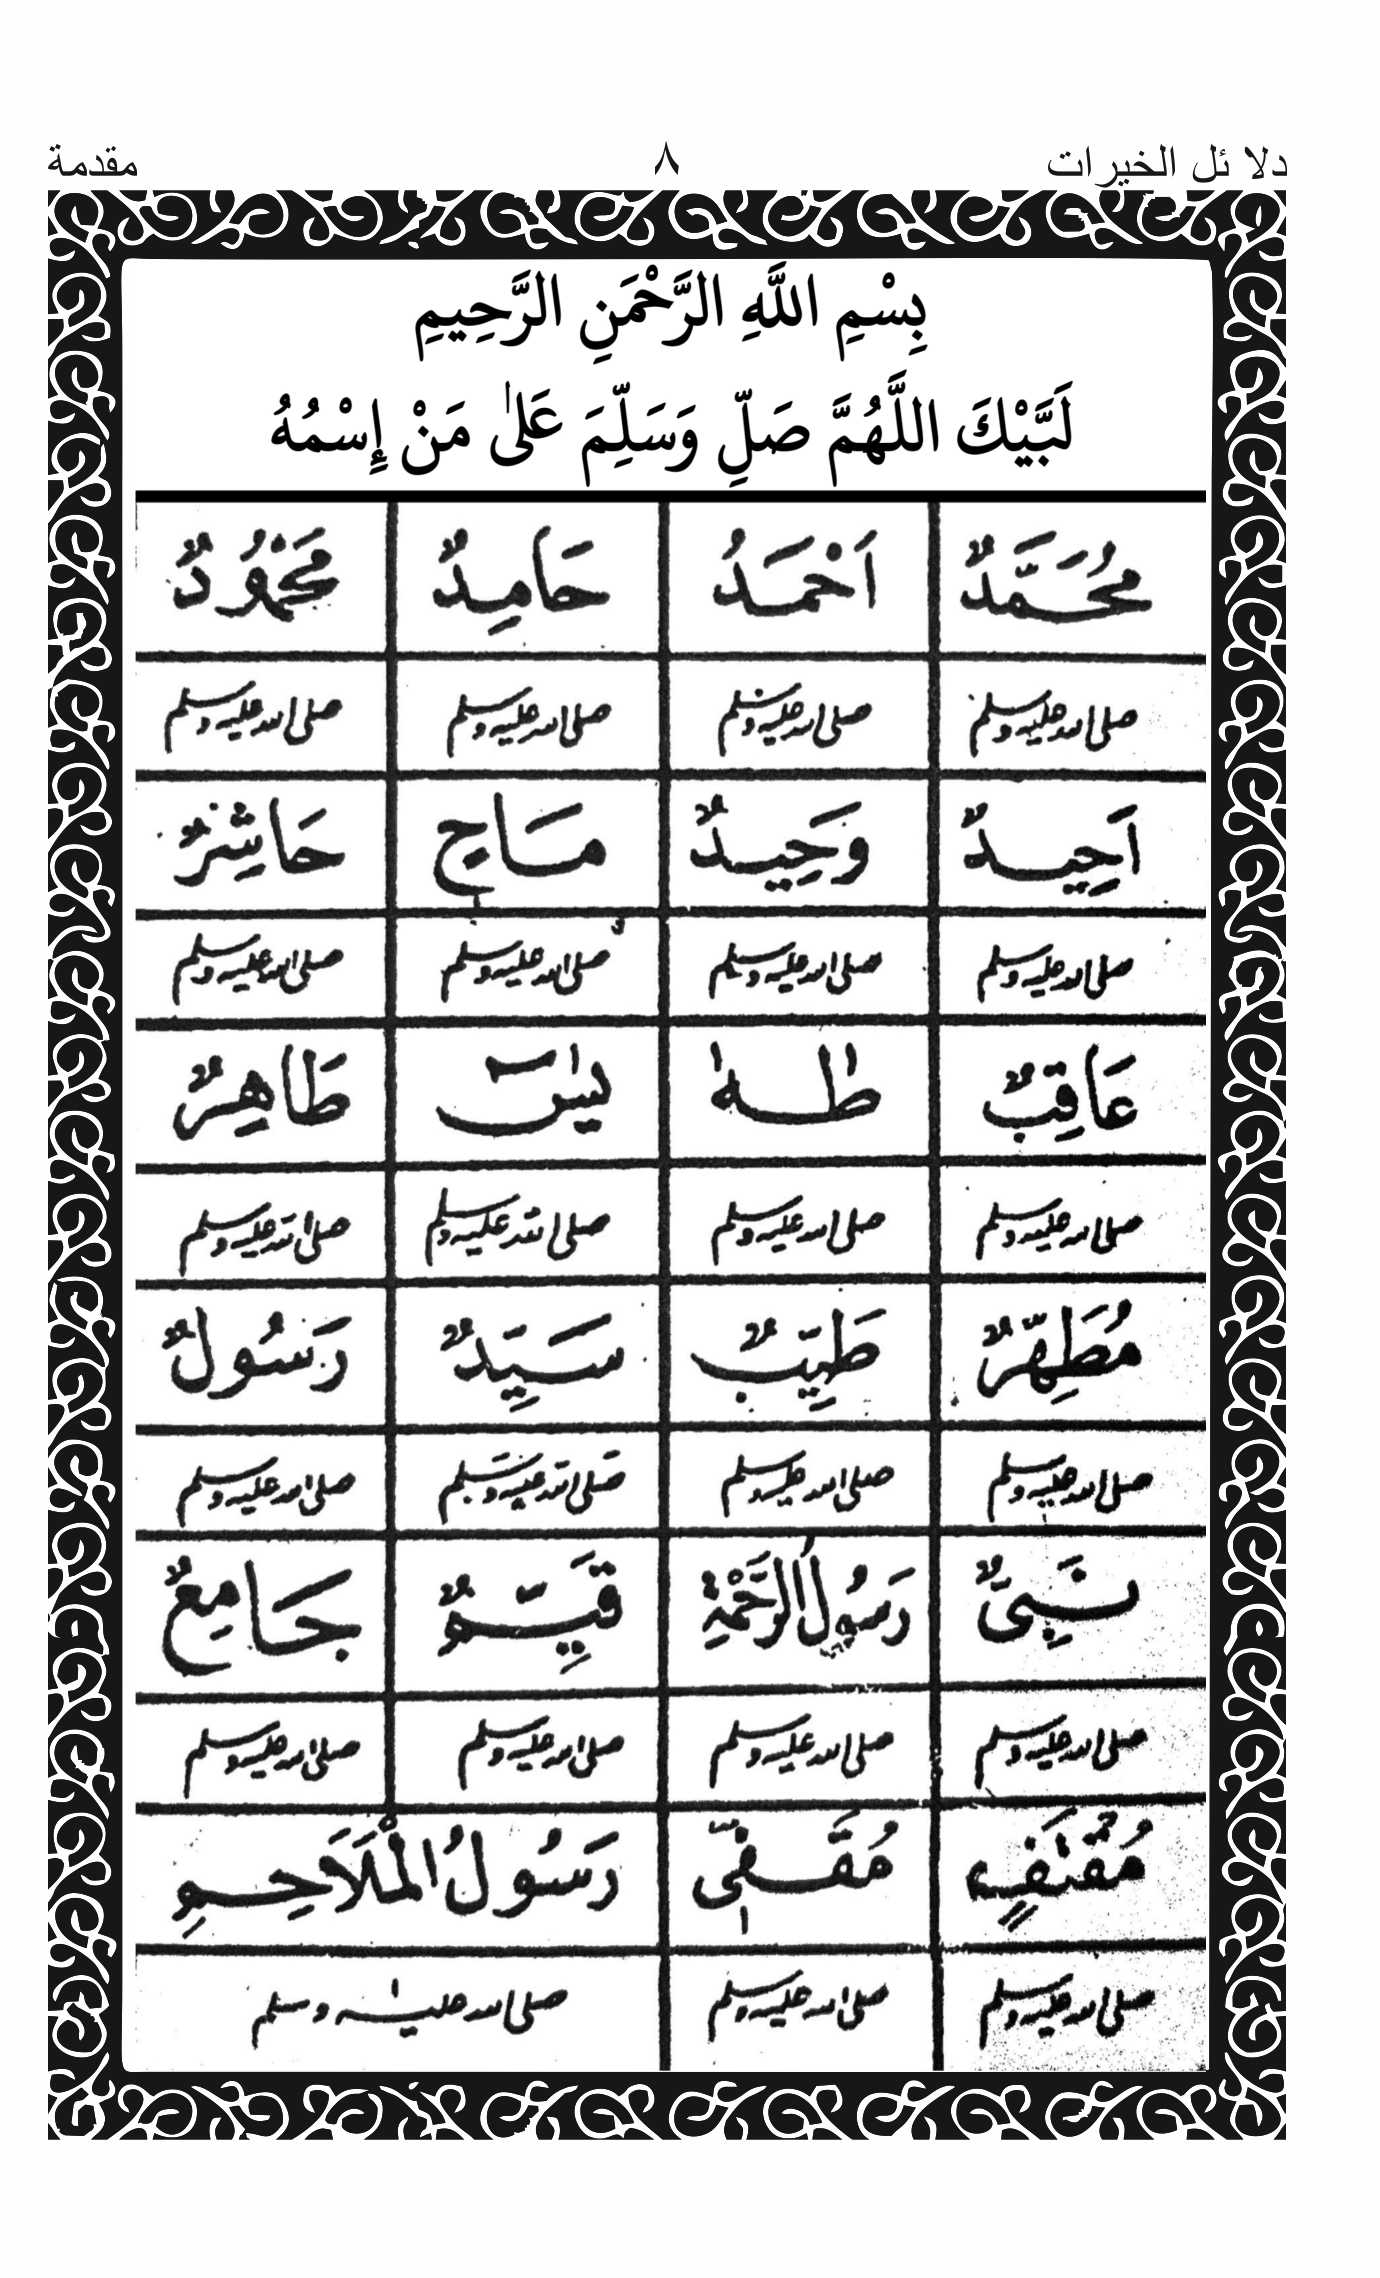 دلا ئل الخيرات ٨ مقدمة
بِسْمِ اللَّهِ الرَّحْمَنِ الرَّحِيمِ
لَبَّيْكَ اللَّهُمَّ صَلِّ وَسَلِّمَ عَلىٰ مَنْ إِسْمُهُ
مُحَمَّدٌ اَحْمَدُ حَامِدٌ مَحْمُودٌ
صلى الله عليه وسلم صلى الله عليه وسلم صلى الله عليه وسلم صلى الله عليه وسلم
اَحِيدٌ وَحِيدٌ مَاحٍ حَاشِرٌ
صلى الله عليه وسلم صلى الله عليه وسلم صلى الله عليه وسلم صلى الله عليه وسلم
عَاقِبٌ طٰهٰ يٰسٓ طَاهِرٌ
صلى الله عليه وسلم صلى الله عليه وسلم صلى الله عليه وسلم صلى الله عليه وسلم
مُطَهِّرٌ طَيِّبٌ سَيِّدٌ رَسُولٌ
صلى الله عليه وسلم صلى الله عليه وسلم صلى الله عليه وسلم صلى الله عليه وسلم
نَبِىٌّ رَسُولُ الرَّحْمَةِ قَيِّمٌ جَامِعٌ
صلى الله عليه وسلم صلى الله عليه وسلم صلى الله عليه وسلم صلى الله عليه وسلم
مُقْتَفٍ مُقَفّٰى رَسُولُ الْمَلَاحِمِ
صلى الله عليه وسلم صلى الله عليه وسلم صلى الله عليه وسلم